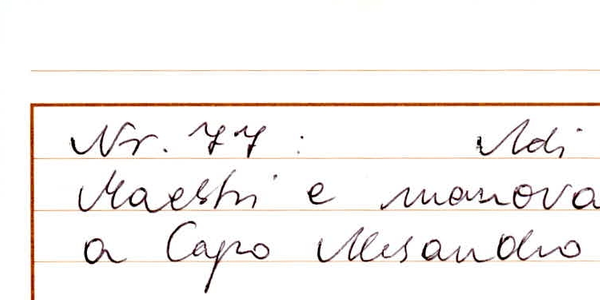 Nr. 77 : Adi
Maestri e manova
a Capo Alesandro